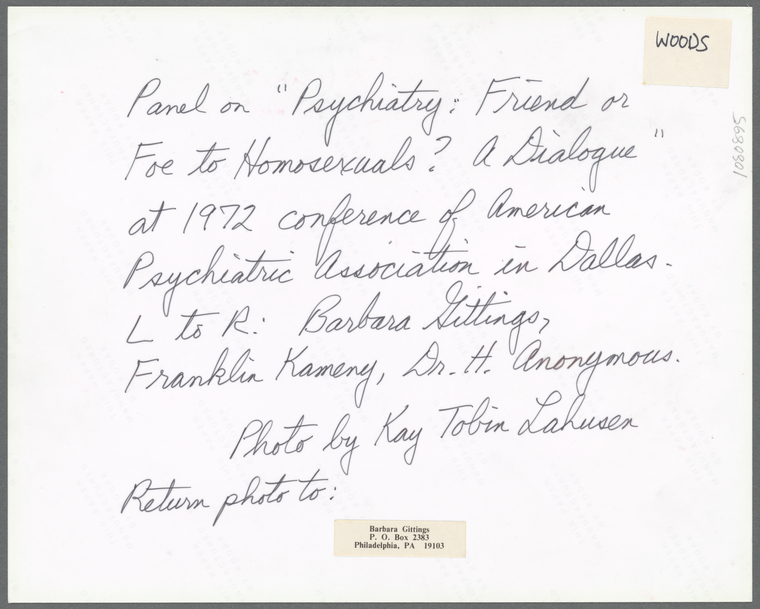 WOODS
1080895
Panel on "Psychiatry: Friend or
Foe to Homosexuals? A Dialogue"
at 1972 conference of American
Psychiatric Association in Dallas.
L to R: Barbara Gittings,
Franklin Kameny, Dr. H. Anonymous.
Photo by Kay Tobin Lahusen
Return photo to:
Barbara Gittings
P. O. Box 2383
Philadelphia, PA 19103